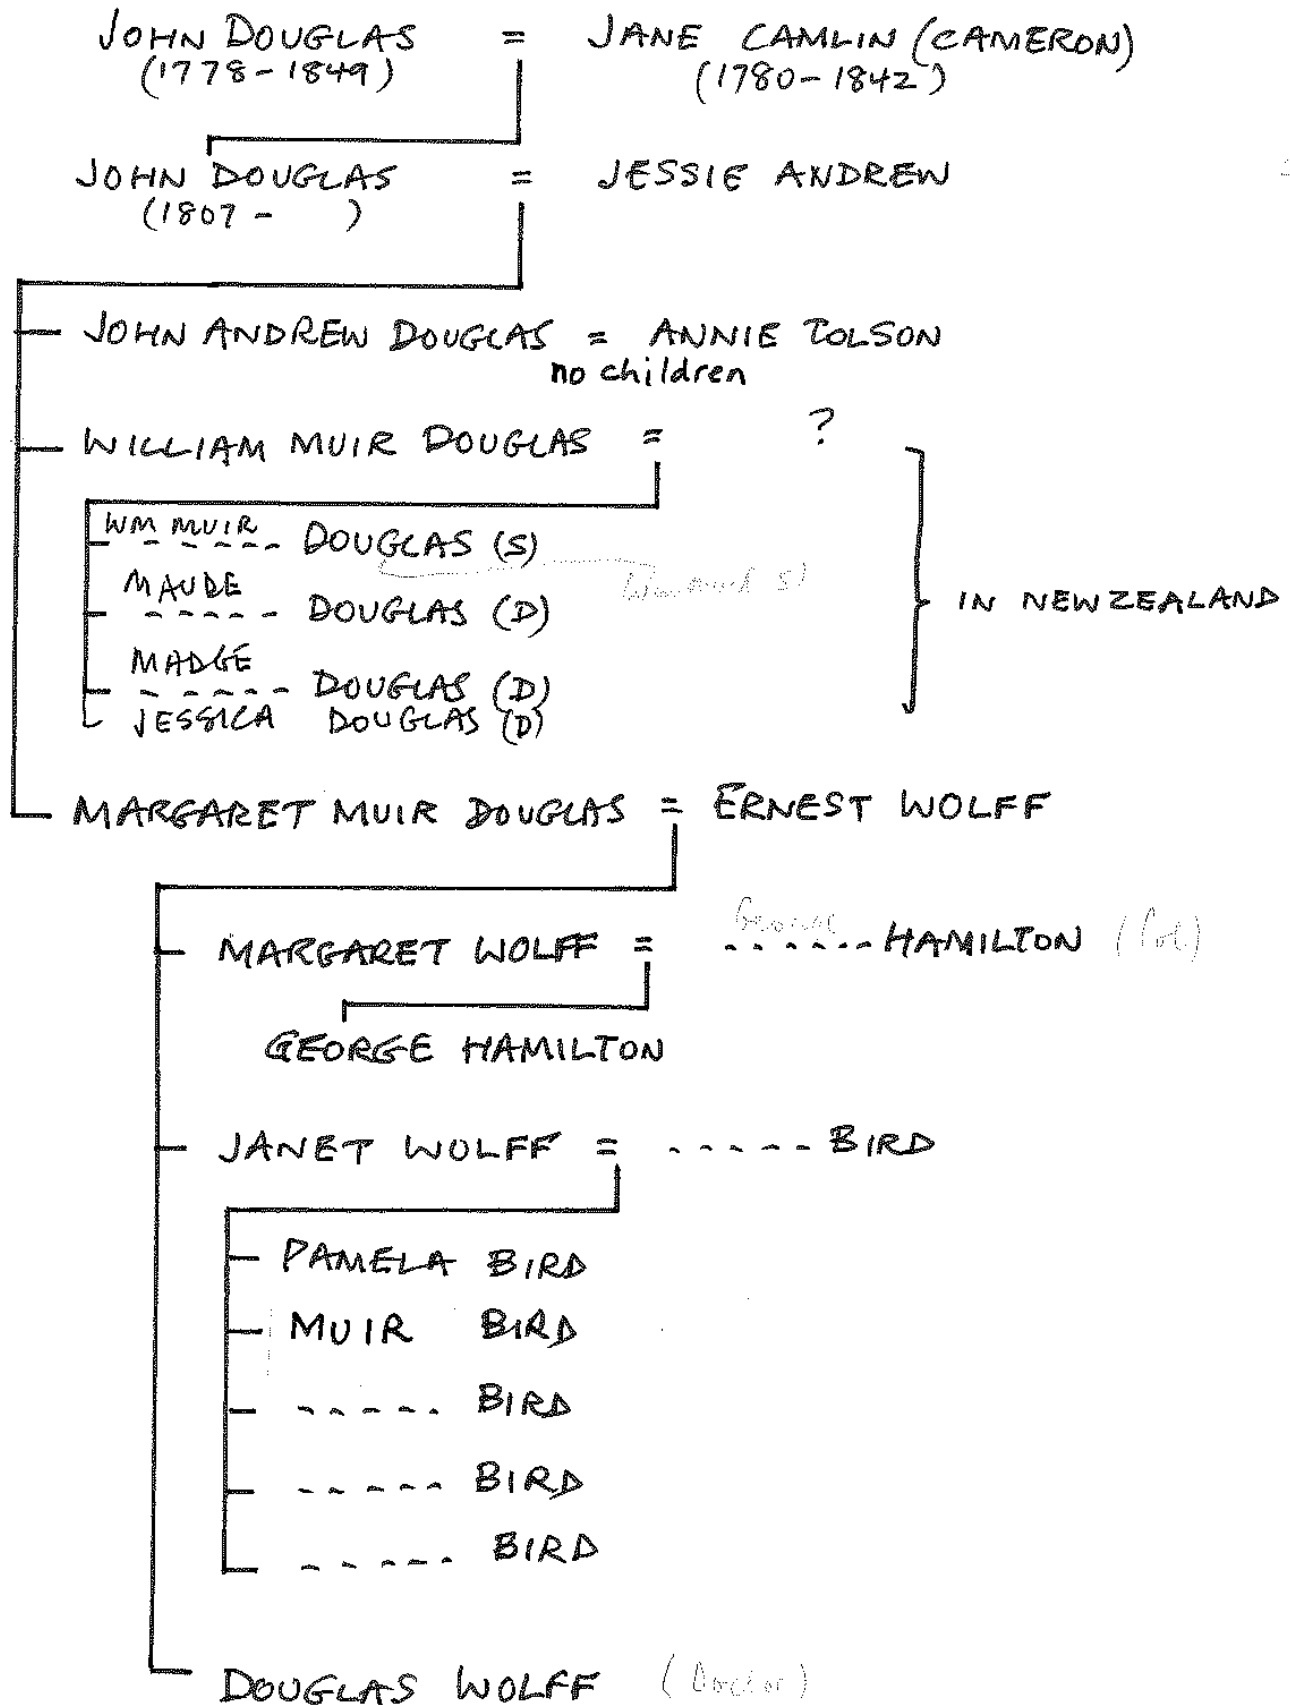 JOHN DOUGLAS = JANE CAMLIN (CAMERON)
(1778-1849) (1780-1842)
JOHN DOUGLAS = JESSIE ANDREW
(1807 - )
JOHN ANDREW DOUGLAS = ANNIE TOLSON
no children
WILLIAM MUIR DOUGLAS = ?
WM MUIR
----- DOUGLAS (S)
MAUDE
----- DOUGLAS (D)
IN NEW ZEALAND
MADGE
----- DOUGLAS (D)
JESSICA DOUGLAS (D)
MARGARET MUIR DOUGLAS = ERNEST WOLFF
George
MARGARET WOLFF = ----- HAMILTON (Col)
GEORGE HAMILTON
JANET WOLFF = ----- BIRD
PAMELA BIRD
MUIR BIRD
----- BIRD
----- BIRD
----- BIRD
DOUGLAS WOLFF (Doctor)